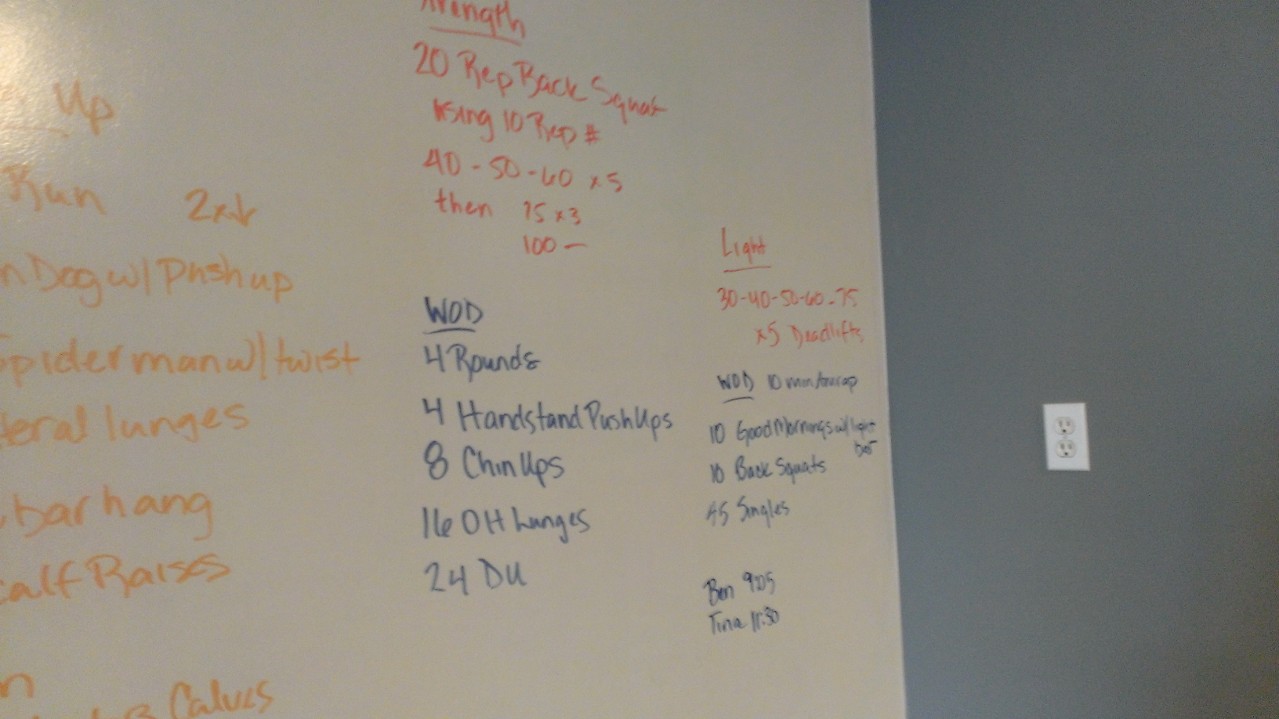 Up
Run 2x↓
Dog w/ Pushup
Spiderman w/ twist
lunges
bar hang
Calf Raises
Calves
Strength
20 Rep Back Squat
Using 10 Rep #
40 - 50 - 60 x5
then 75 x3
100 -
WOD
4 Rounds
4 Handstand PushUps
8 Chin Ups
16 OH Lunges
24 DU
Light
30-40-50-60-75
x5 Deadlifts
WOD 10 min
10 Good Mornings w/ light
10 Back Squats
45 Singles
Ben 9:05
Tina 11:30